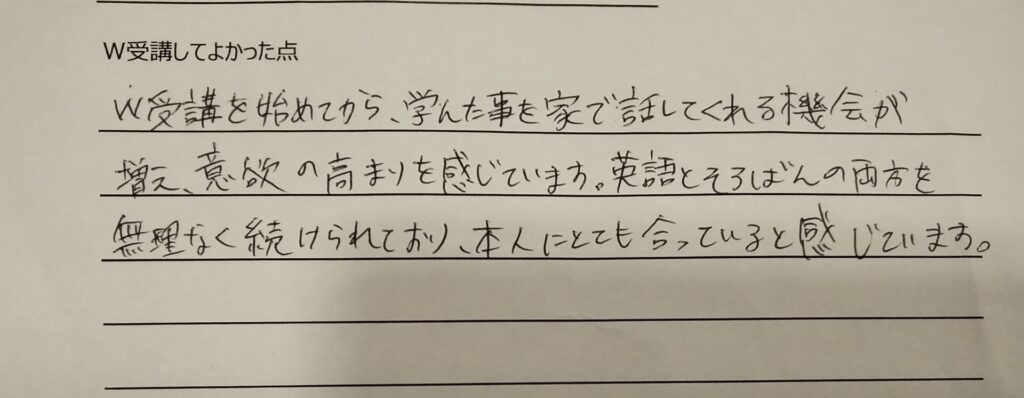 W受講してよかった点
W受講を始めてから、学んだ事を家で話してくれる機会が
増え、意欲の高まりを感じています。英語とそろばんの両方を
無理なく続けられており、本人にとても合っていると感じています。